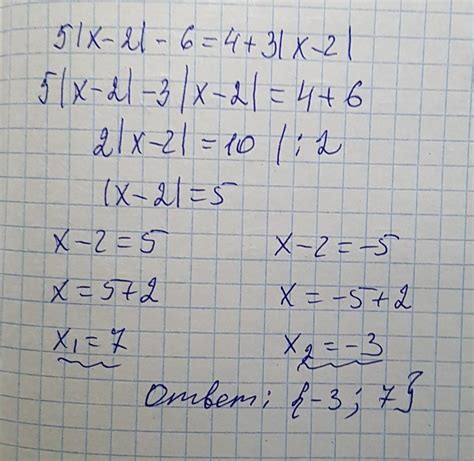 5|x-2|-6=4+3|x-2|
5|x-2|-3|x-2|=4+6
2|x-2|=10 |:2
|x-2|=5
x-2=5 x-2=-5
x=5+2 x=-5+2
x₁=7 x₂=-3
Ответ: {-3; 7}